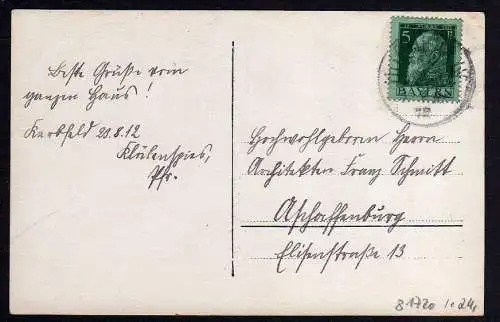 Beste Grüße vom
ganzen Haus!
Kerbfeld 20.8.12
Klülenspies,
Pfr.
5 Pf
BAYERN
12
Hochwohlgeboren Herrn
Architekten Franz Schmitt
Aschaffenburg
Elisenstraße 13
B1720